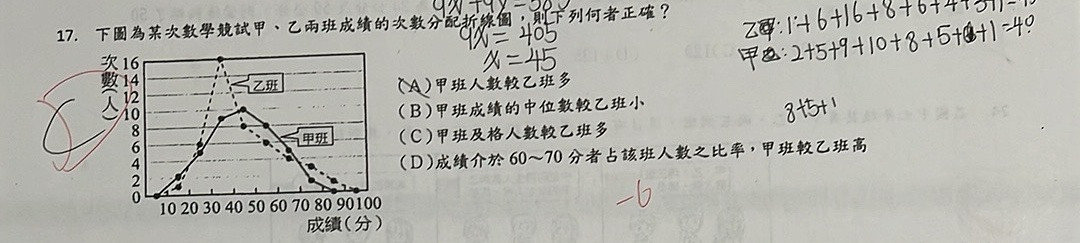 9x+9x=360
17. 下圖為某次數學競試甲、乙兩班成績的次數分配折線圖，則下列何者正確？
9x = 405
x = 45
乙班: 1+6+16+8+6+4+3+1=45
甲班: 2+5+9+10+8+5+1=40
次數(人)
16
14
12
10
8
6
4
2
0
乙班
甲班
10 20 30 40 50 60 70 80 90 100
成績(分)
(A)甲班人數較乙班多
(B)甲班成績的中位數較乙班小
(C)甲班及格人數較乙班多
(D)成績介於 60～70 分者占該班人數之比率，甲班較乙班高
8+5+1
C
-6